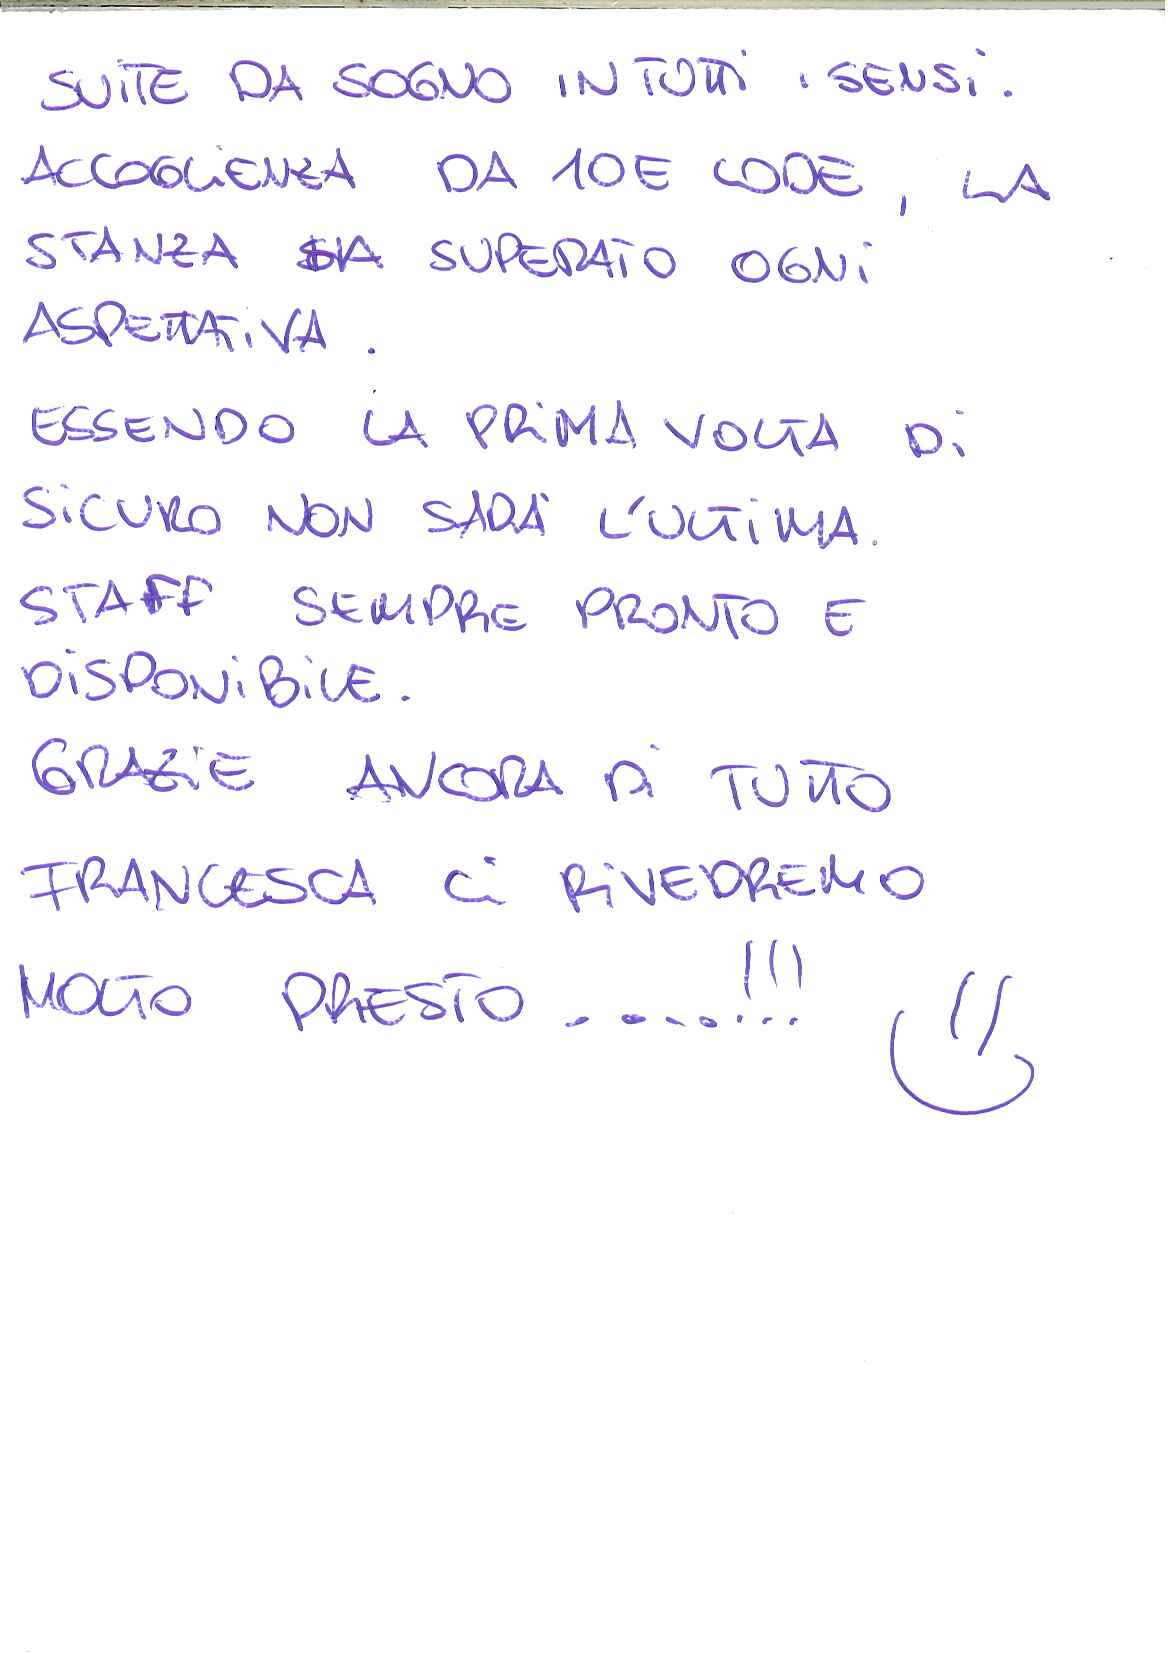 SUITE DA SOGNO IN TUTTI I SENSI.
ACCOGLIENZA DA 10 E LODE, LA
STANZA HA SUPERATO OGNI
ASPETTATIVA.
ESSENDO LA PRIMA VOLTA DI
SICURO NON SARÀ L'ULTIMA.
STAFF SEMPRE PRONTO E
DISPONIBILE.
GRAZIE ANCORA DI TUTTO
FRANCESCA CI RIVEDREMO
MOLTO PRESTO .......!!!